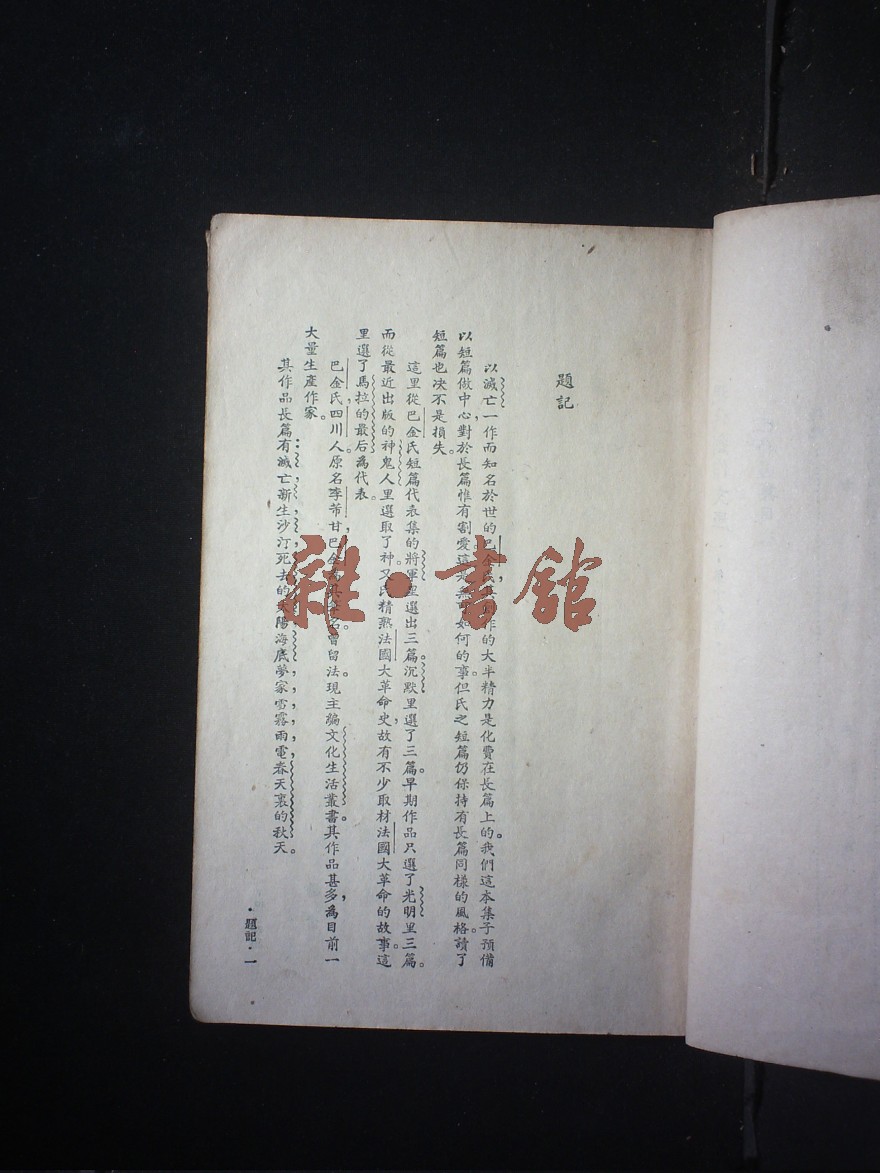 題記
以滅亡一作而知名於世的巴金氏，其創作的大半精力是化費在長篇上的。我們這本集子預備
以短篇做中心，對於長篇惟有割愛，這是無可如何的事。但氏之短篇仍保持有長篇同樣的風格，讀了
短篇也決不是損失。
這里從巴金氏短篇代表集的將軍里選出三篇。沉默里選了三篇。早期作品只選了光明里三篇。
而從最近出版的神鬼人里選取了神。又氏精熟法國大革命史，故有不少取材法國大革命的故事。這
里選了馬拉的最后為代表。
巴金氏，四川人。原名李芾甘，巴金為其筆名。曾留法。現主編文化生活叢書。其作品甚多，為目前一
大量生產作家。
其作品長篇有：滅亡，新生，沙汀，死去的太陽，海底夢，家，雪，霧，雨，電，春天裏的秋天。
·題記·一
雜·書館